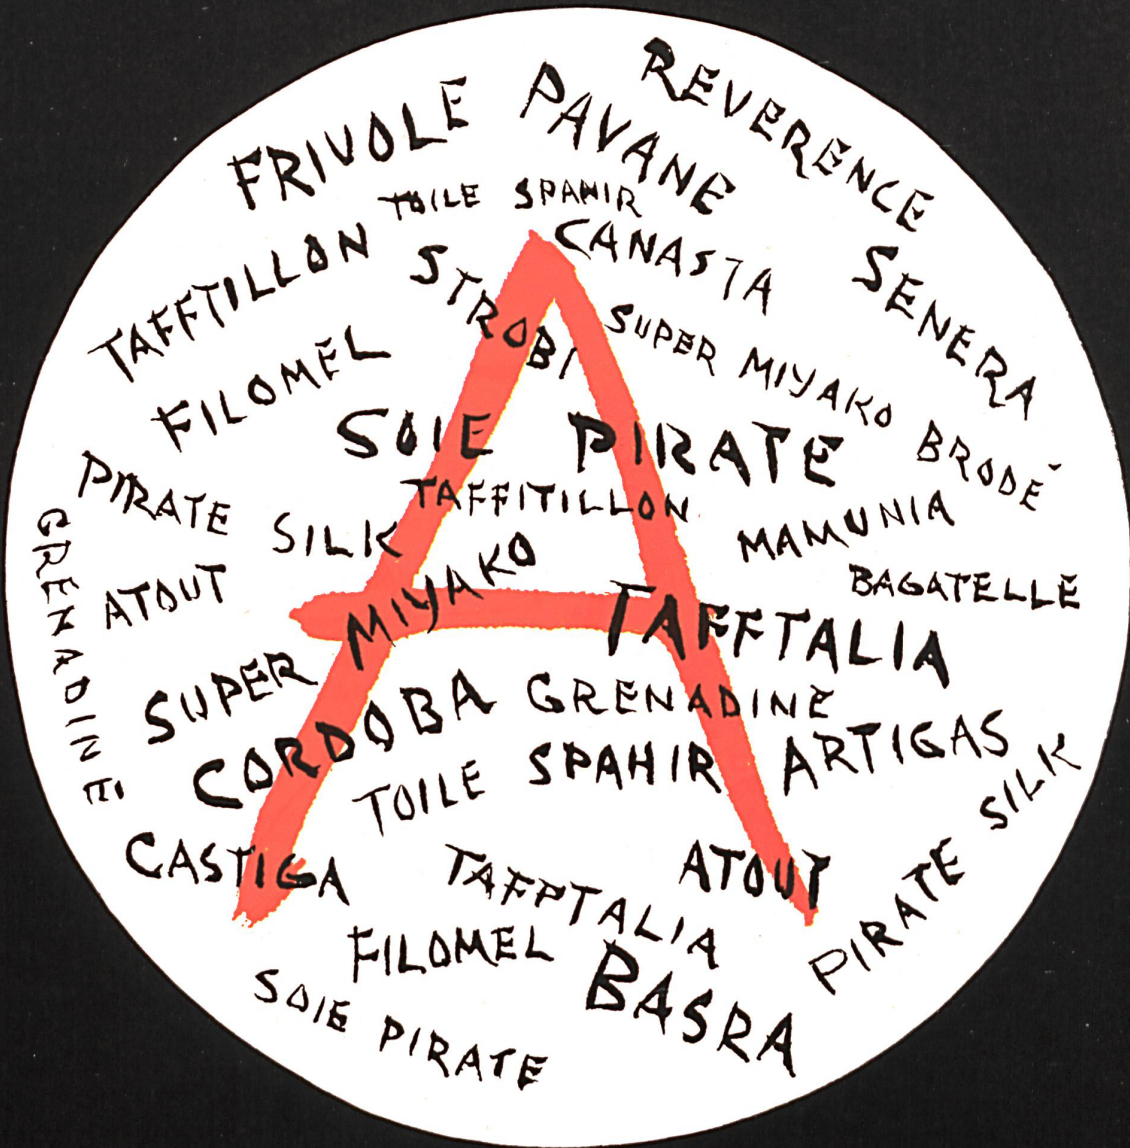 REVERENCE
FRIVOLE
PAVANE
TOILE SPAHIR
CANASTA
SENERA
TAFFTILLON
STROBI
SUPER MIYAKO BRODÉ
FILOMEL
SOIE PIRATE
PIRATE SILK
TAFFITILLON
MAMUNIA
GRENADINE
ATOUT
BAGATELLE
SUPER MIYAKO
TAFFTALIA
CORDOBA
GRENADINE
TOILE SPAHIR
ARTIGAS
PIRATE SILK
CASTIGA
TAFPTALIA
ATOUT
FILOMEL
BASRA
SOIE PIRATE
A